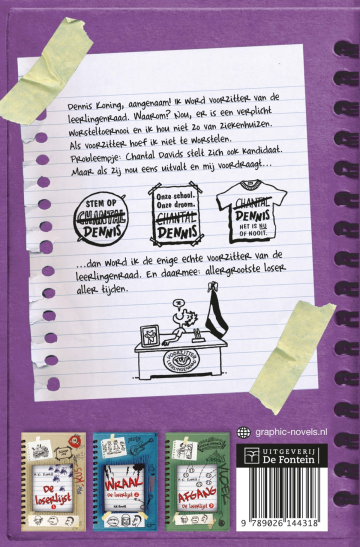 Dennis Koning, aangenaam! Ik word voorzitter van de
leerlingenraad. Waarom? Nou, er is een verplicht
worsteltoernooi en ik hou niet zo van ziekenhuizen.
Als voorzitter hoef ik niet te worstelen.
Probleempje: Chantal Davids stelt zich ook kandidaat.
Maar als zij nou eens uitvalt en mij voordraagt...
STEM OP
CHANTAL
DENNIS
Onze school.
Onze droom.
CHANTAL
DENNIS
CHANTAL
DENNIS
HET IS NU
OF NOOIT.
...dan word ik de enige echte voorzitter van de
leerlingenraad. En daarmee: allergrootste loser
aller tijden.
VOORZITTER
LEERLINGENRAAD
graphic-novels.nl
De
loserlijst
1
WRAAK
De loserlijst 2
AFGANG
De loserlijst 3
UITGEVERIJ
De Fontein
9 789026 144318